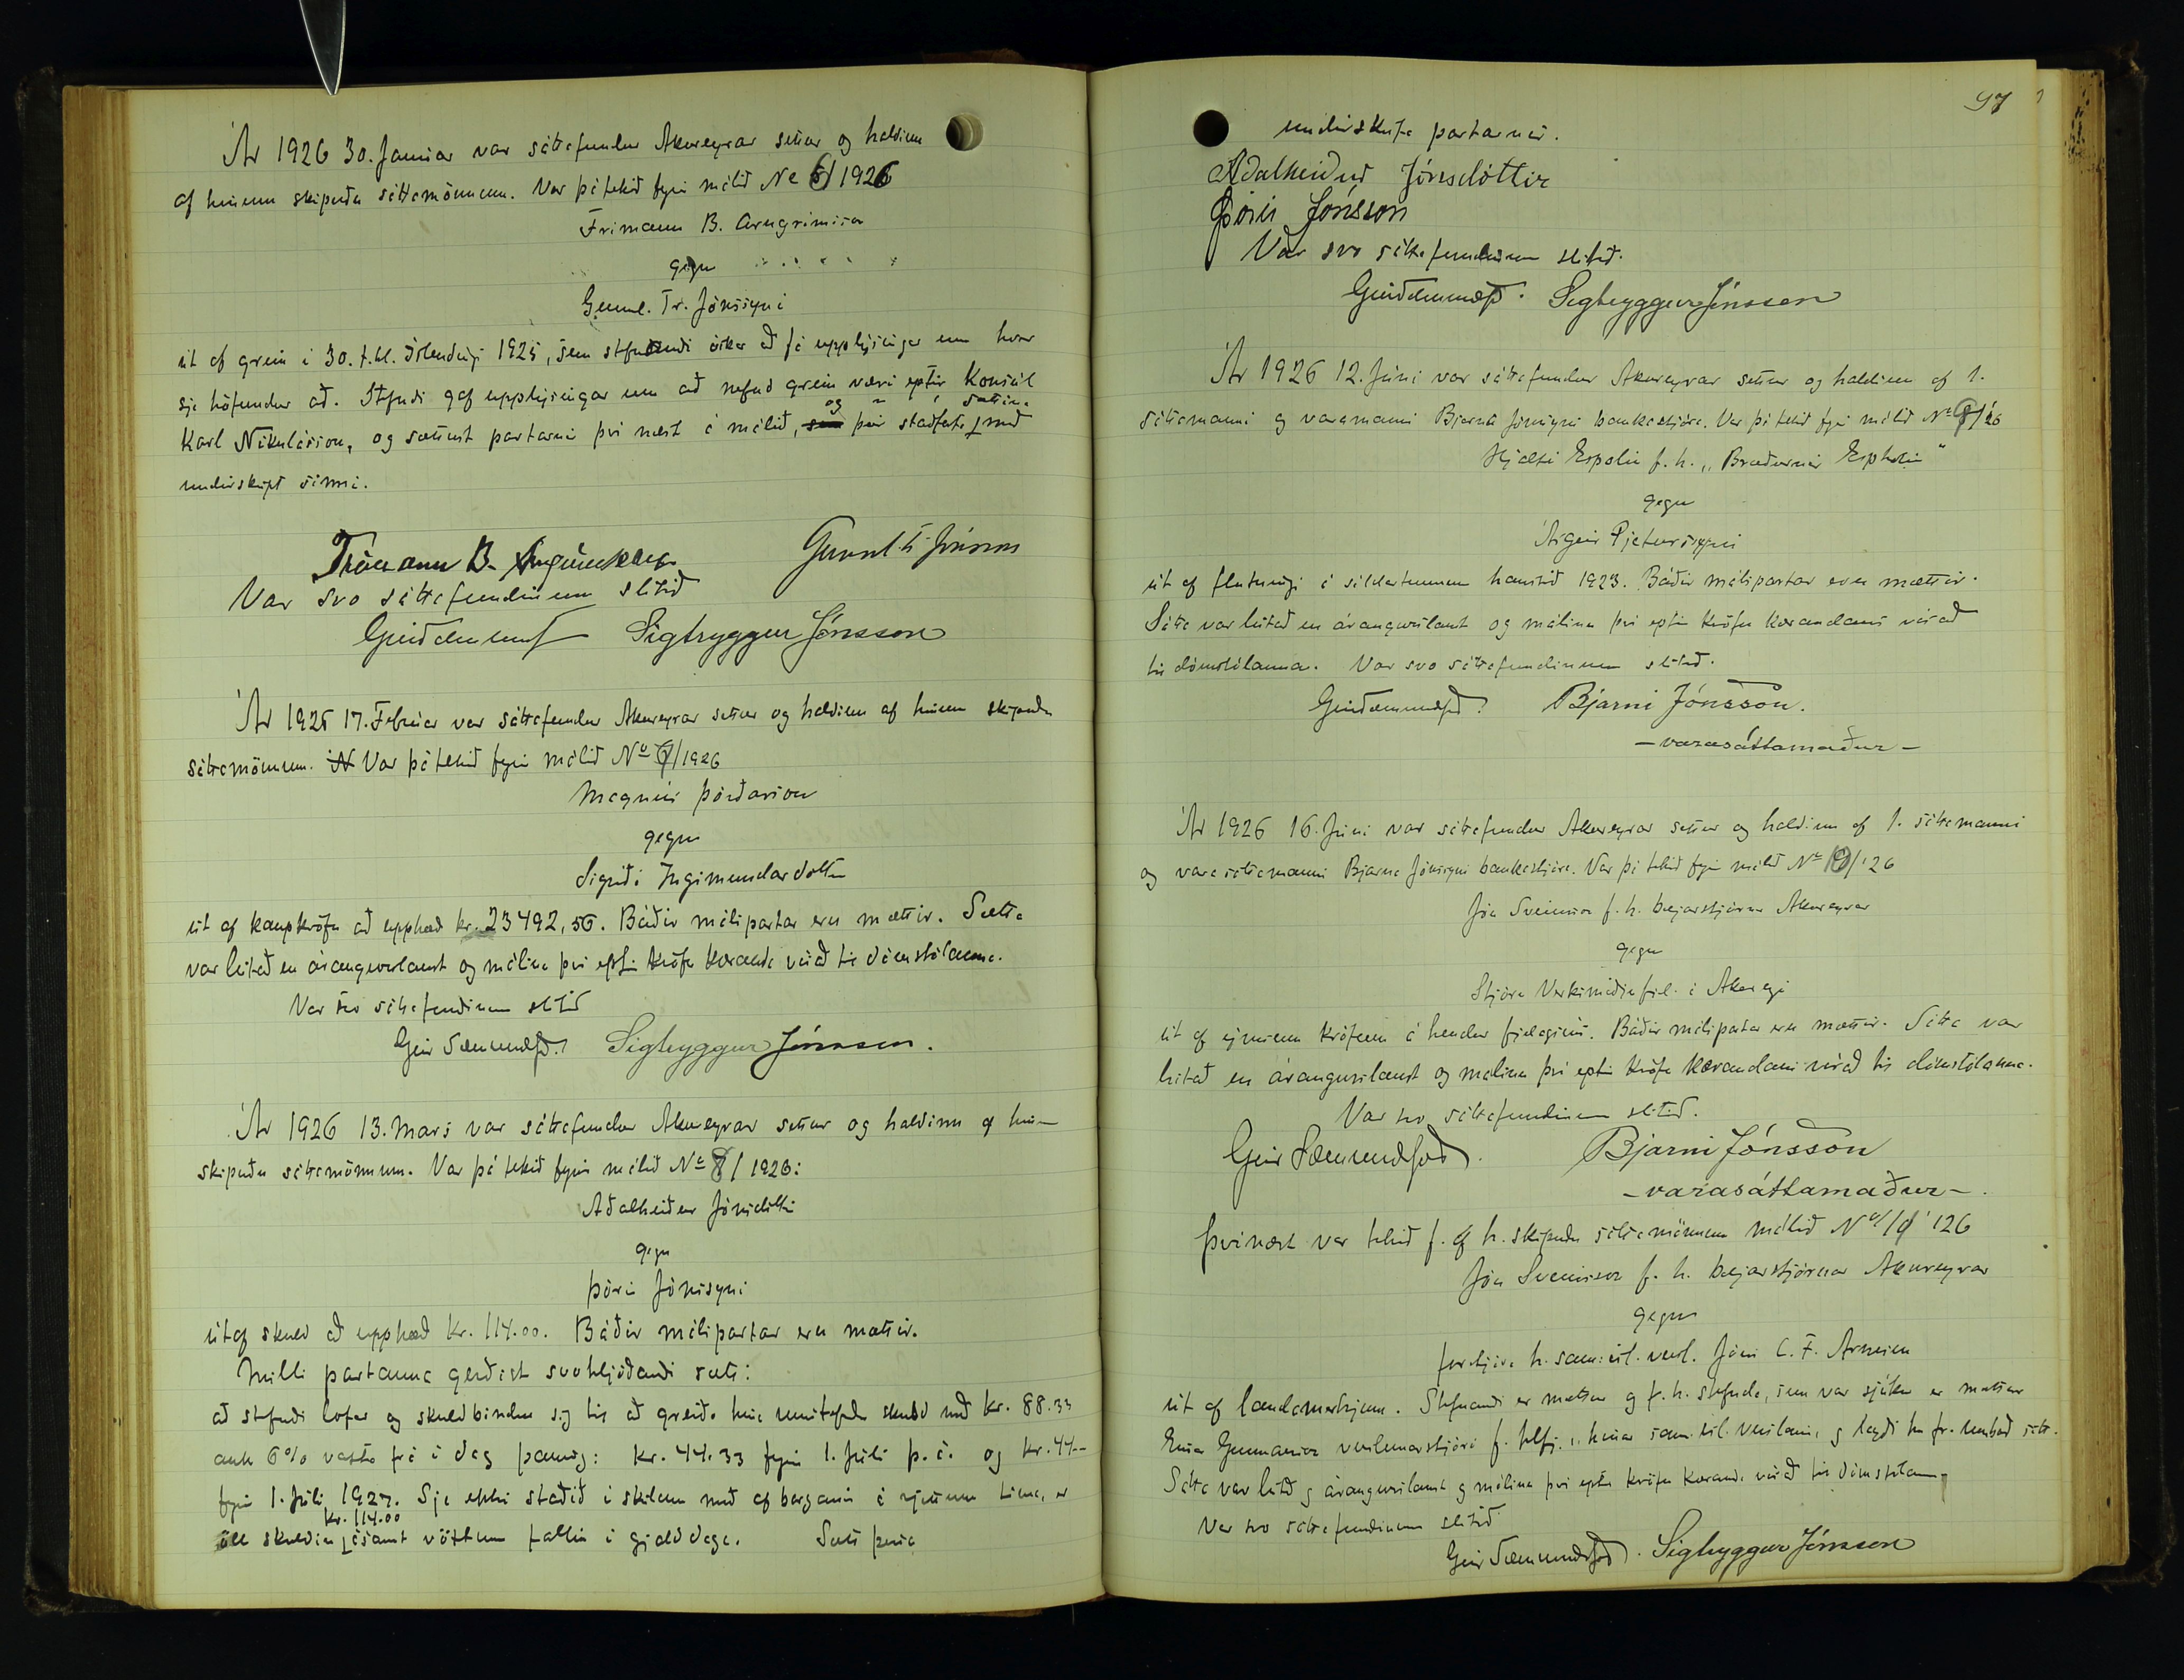 Ár 1926 30. Janúar var sáttafundur Akureyrar settur og haldinn
af hinum skipuðu sáttamönnum. Var þá tekið fyrir málið No 6/1926
Frímann B. Arngrímsson
gegn
Gunnl. Tr. Jónssyni
út af grein í 30. t.bl. Íslendings 1925, sem stefnandi óskar að fá upplýsingar um hver
sje höfundur að. Stefndi gaf upplýsingar um að nefnd grein væri eptir Konsúl
Karl Nikulásson, og sættust partarnir því næst á málið, og þeir staðfesta sættina með
undirskript sinni.
Frímann B. Arngrímsson Gunnl. Tr. Jónsson
Var svo sáttafundinum slitið
Geir Sæmundsson Sigtryggur Jónsson
Ár 1926 17. Febrúar var sáttafundur Akureyrar settur og haldinn af hinum skipuðu
sáttamönnum. Var þá tekið fyrir málið No 7/1926
Magnús Þórðarson
gegn
Sigríði Ingimundardóttir
út af kaupkröfu að upphæð kr. 23492,50. Báðir málspartar eru mættir. Sætta
var leitað en árangurslaust og málinu því eptir kröfu kæranda vísað til dómstólanna.
Var svo sáttafundinum slitið
Geir Sæmundsson Sigtryggur Jónsson.
Ár 1926 13. Mars var sáttafundur Akureyrar settur og haldinn af hinum
skipuðu sáttamönnum. Var þá tekið fyrir málið No 8/1926:
Aðalheiður Jónsdóttir
gegn
Þóri Jónssyni
út af skuld að upphæð kr. 114.00. Báðir málspartar eru mættir.
Milli partanna gerðist svohljóðandi sætt:
að stefndi lofar og skuldbindur sig til að greiða hina umstefndu skuld með kr. 88.33
auk 6% vaxta frá í dag þannig: kr. 44.33 fyrir 1. Júlí þ.á. og kr. 44--
fyrir 1. Júlí 1927. Sje ekki staðið í skilum með afborganir á rjettum tíma, er
öll skuldin kr. 114.00 ásamt vöxtum fallin í gjalddaga. Sætt þessa
97
undirskrifa partarnir.
Aðalheiður Jónsdóttir
Þórir Jónsson
Var svo sáttafundinum slitið.
Geir Sæmundsson. Sigtryggur Jónsson
Ár 1926 12. Júní var sáttafundur Akureyrar settur og haldinn af 1.
sáttamanni og varamanni Bjarna Jónssyni bankastjóra. Var þá tekið fyrir málið No 9/26
Hjalti Espolin f.h. "Bræðurnir Espholin"
gegn
Ásgeir Pjeturssyni
út af flutningi á síldartunnum haustið 1923. Báðir málspartar eru mættir.
Sátta var leitað en árangurslaust og málinu því eptir kröfu kærandans vísað
til dómstólanna. Var svo sáttafundinum slitið.
Geir Sæmundsson Bjarni Jónsson.
- varasáttamaður -
Ár 1926 16. Júní var sáttafundur Akureyrar settur og haldinn af 1. sáttamanni
og varasáttamanni Bjarna Jónssyni bankastjóra. Var þá tekið fyrir málið No 10/'26
Jón Sveinsson f.h. bæjarstjórnar Akureyrar
gegn
Stjórn Verksmiðjufjel. á Akureyri
út af ýmsum kröfum á hendur fjelaginu. Báðir málspartar eru mættir. Sátta var
leitað en árangurslaust og málinu því eptir kröfu kærandans vísað til dómstólanna.
Var svo sáttafundinum slitið.
Geir Sæmundsson. Bjarni Jónsson
- varasáttamaður -.
Þvínæst var tekið f. af h. skipuðu sáttamönnum málið No 11/'26
Jón Sveinsson f.h. bæjarstjórnar Akureyrar
gegn
forstjóra h. sam: ísl. versl. Jóni C. F. Arnesen
út af landamerkjum. Stefnandi er mættur og f.h. stefnda, sem var sjúkur er mættur
Einar Gunnarsson verslunarstjóri f. hlfj. "hinar sam. ísl. verslanir, og lagði fr. umboð sitt.
Sátta var leitað árangurslaust og málinu því eptir kröfu kæranda vísað til dómstólanna
Var svo sáttafundinum slitið
Geir Sæmundsson. Sigtryggur Jónsson